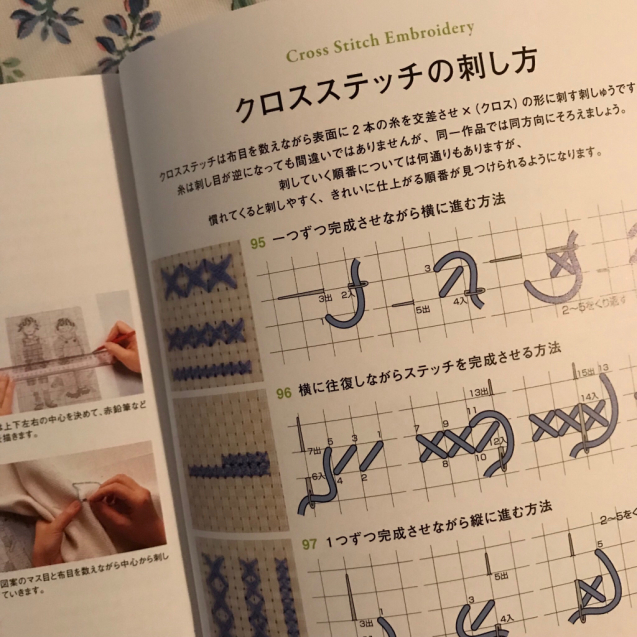 Cross Stitch Embroidery
クロスステッチの刺し方
クロスステッチは布目を数えながら表面に2本の糸を交差させ×(クロス)の形に刺す刺しゅうです
糸は刺し目が逆になっても間違いではありませんが、同一作品では同方向にそろえましょう。
刺していく順番については何通りもありますが、
慣れてくると刺しやすく、きれいに仕上がる順番が見つけられるようになります。
95 一つずつ完成させながら横に進む方法
3出 2入
1
3
5出 4入
2〜5をくり返す
96 横に往復しながらステッチを完成させる方法
7出 5 3 1
6入 4 2
13出
7 9 11
8 10 12入
15出 13
14入
97 1つずつ完成させながら縦に進む方法
3出 1
5出
3
4入
2〜5を
5
は上下左右の中心を決めて、赤鉛筆など
を描きます。
図案のマス目と布目を数えながら中心から刺し
ていきます。